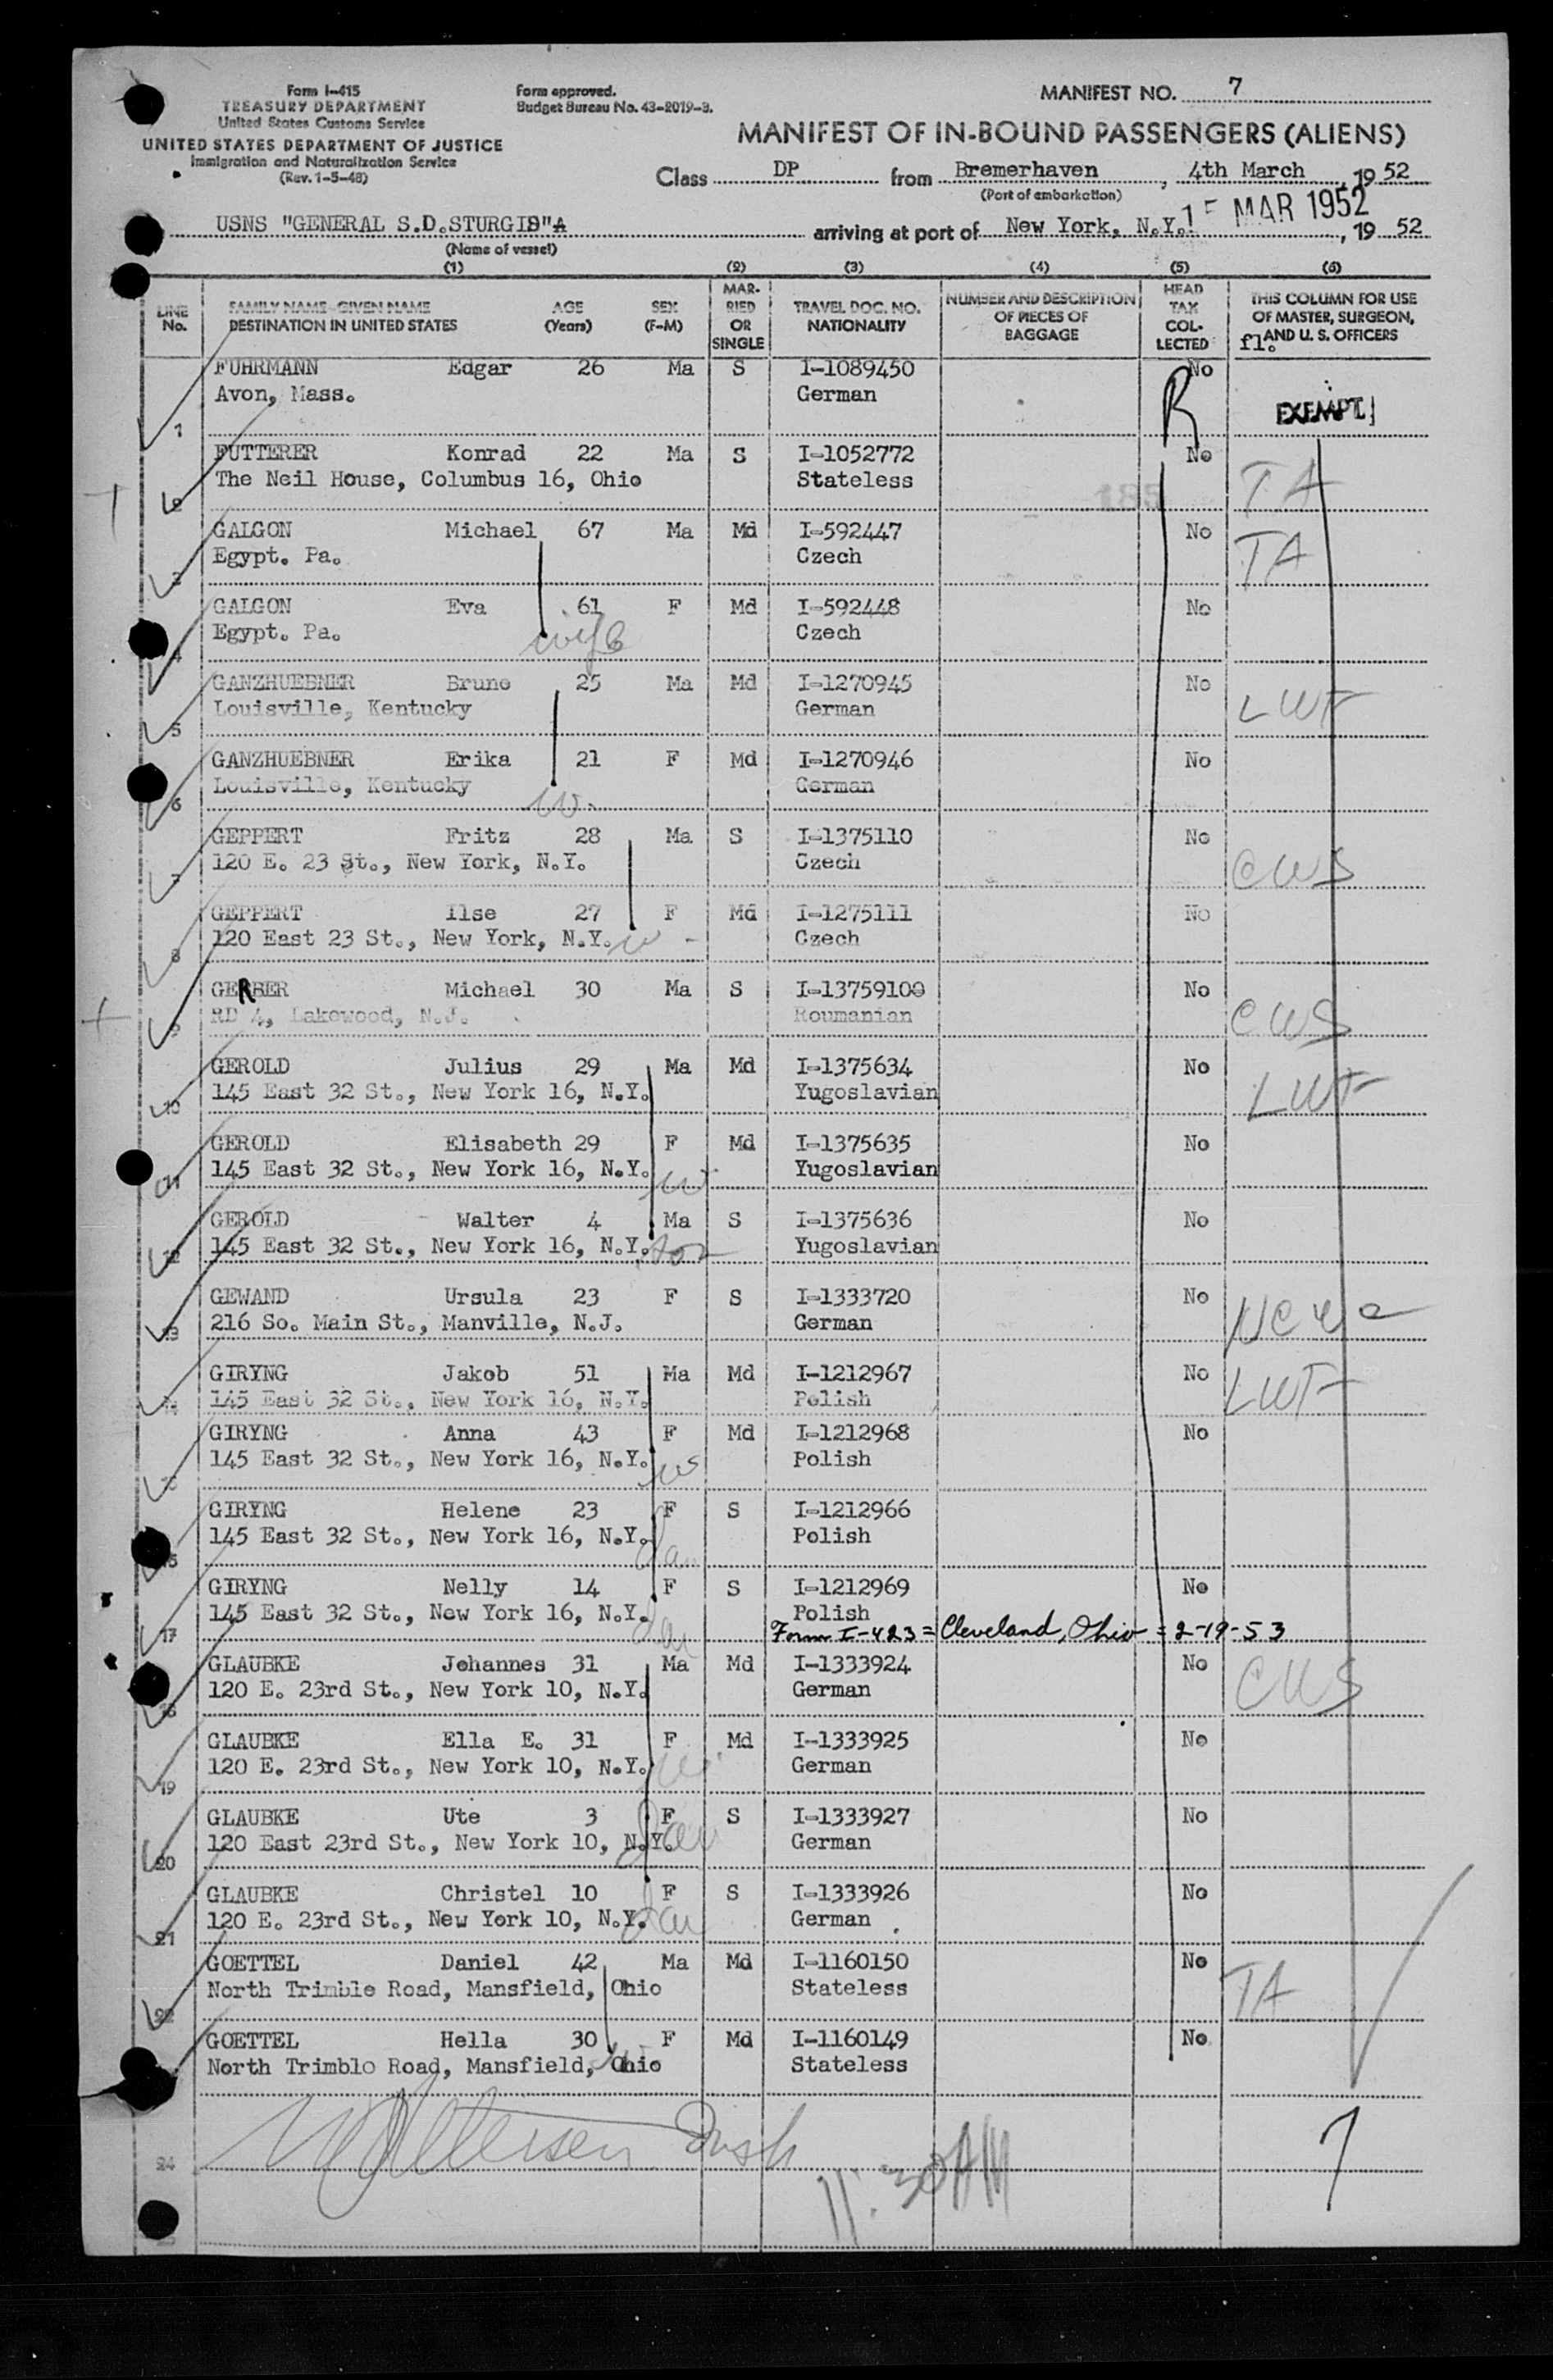 Form I-415
TREASURY DEPARTMENT
United States Customs Service
UNITED STATES DEPARTMENT OF JUSTICE
Immigration and Naturalization Service
(Rev. 1-5-48)
Form approved.
Budget Bureau No. 43-2019-3.
MANIFEST NO. 7
MANIFEST OF IN-BOUND PASSENGERS (ALIENS)
Class DP from Bremerhaven, 4th March, 19 52
(Port of embarkation)
15 MAR 1952
USNS "GENERAL S.D.STURGIS" arriving at port of New York, N.Y., 19 52
(Name of vessel)
(1) (2) (3) (4) (5) (6)
LINE No. FAMILY NAME-GIVEN NAME DESTINATION IN UNITED STATES AGE (Years) SEX (F-M) MARRIED OR SINGLE TRAVEL DOC. NO. NATIONALITY NUMBER AND DESCRIPTION OF PIECES OF BAGGAGE HEAD TAX COLLECTED THIS COLUMN FOR USE OF MASTER, SURGEON, AND U. S. OFFICERS
fl.
FUHRMANN Edgar 26 Ma S I-1089450 No
1 Avon, Mass. German R EXEMPT
FUTTERER Konrad 22 Ma S I-1052772 No
2 The Neil House, Columbus 16, Ohio Stateless TA
GALGON Michael 67 Ma Md I-592447 No
3 Egypt. Pa. Czech TA
GALGON Eva 61 F Md I-592448 No
4 Egypt. Pa. wife Czech
GANZHUEBNER Bruno 25 Ma Md I-1270945 No
5 Louisville, Kentucky German LWF
GANZHUEBNER Erika 21 F Md I-1270946 No
6 Louisville, Kentucky w. German
GEPPERT Fritz 28 Ma S I-1375110 No
7 120 E. 23 St., New York, N.Y. Czech CWS
GEPPERT Ilse 27 F Md I-1275111 No
8 120 East 23 St., New York, N.Y. w Czech
GERBER Michael 30 Ma S I-13759100 No
9 RD 4, Lakewood, N.J. Roumanian CWS
GEROLD Julius 29 Ma Md I-1375634 No
10 145 East 32 St., New York 16, N.Y. Yugoslavian LWF
GEROLD Elisabeth 29 F Md I-1375635 No
11 145 East 32 St., New York 16, N.Y. w Yugoslavian
GEROLD Walter 4 Ma S I-1375636 No
12 145 East 32 St., New York 16, N.Y. son Yugoslavian
GEWAND Ursula 23 F S I-1333720 No
13 216 So. Main St., Manville, N.J. German NCWC
GIRYNG Jakob 51 Ma Md I-1212967 No
14 145 East 32 St., New York 16, N.Y. Polish LWF
GIRYNG Anna 43 F Md I-1212968 No
15 145 East 32 St., New York 16, N.Y. w Polish
GIRYNG Helene 23 F S I-1212966
16 145 East 32 St., New York 16, N.Y. dau Polish
GIRYNG Nelly 14 F S I-1212969 No
17 145 East 32 St., New York 16, N.Y. dau Polish
Form I-423 = Cleveland, Ohio = 2-19-53
GLAUBKE Johannes 31 Ma Md I-1333924 No
18 120 E. 23rd St., New York 10, N.Y. German CWS
GLAUBKE Ella E. 31 F Md I-1333925 No
19 120 E. 23rd St., New York 10, N.Y. w. German
GLAUBKE Ute 3 F S I-1333927 No
20 120 East 23rd St., New York 10, N.Y. dau German
GLAUBKE Christel 10 F S I-1333926 No
21 120 E. 23rd St., New York 10, N.Y. dau German
GOETTEL Daniel 42 Ma Md I-1160150 No
22 North Trimble Road, Mansfield, Ohio Stateless TA
GOETTEL Hella 30 F Md I-1160149 No
North Trimblo Road, Mansfield, Ohio Stateless
24 Insp 11:30AM 7